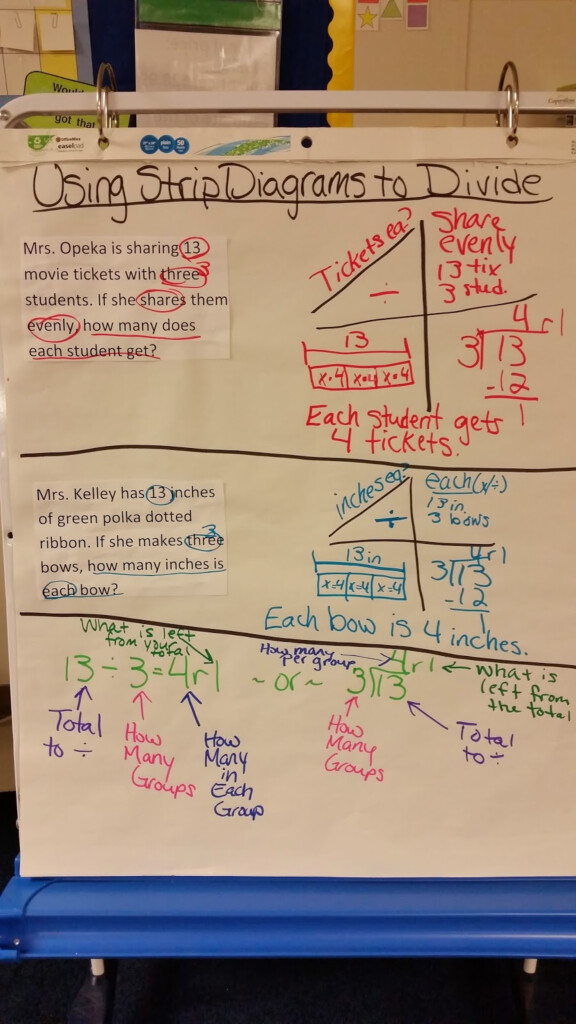 Would
got that
Using Strip Diagrams to Divide
Mrs. Opeka is sharing 13
movie tickets with three
3
students. If she shares them
evenly, how many does
each student get?
Tickets ea?
÷
Share
evenly
13 tix
3 stud.
13
x=4 x=4 x=4
4 r1
3 13
-12
1
Each student gets
4 tickets.
Mrs. Kelley has 13 inches
of green polka dotted
ribbon. If she makes three
3
bows, how many inches is
each bow?
inches ea?
÷
each (x/÷)
13 in.
3 bows
13 in
x=4 x=4 x=4
4 r1
3 13
-12
1
Each bow is 4 inches.
What is left
from your
total
13 ÷ 3 = 4 r1
Total
to ÷
How
Many
Groups
How
Many
in
Each
Group
~ or ~
How many
per group
4 r1
3 13
What is
left from
the total
How
Many
Groups
Total
to ÷